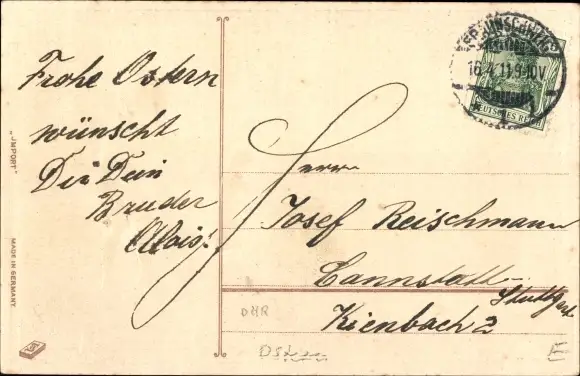 Frohe Ostern
wünscht
Dir Dein
Bruder
Alois.
Herrn
Josef Reischmann
Cannstatt
Stuttgart
Kienbach 2
16.4.11.9-10V
DEUTSCHES REICH
"IMPORT"
MADE IN GERMANY
Ostern
E